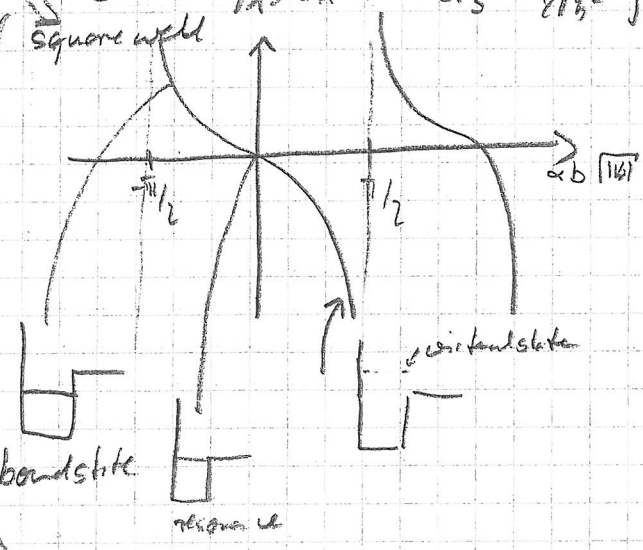 square well
-π/2
π/2
αb √|V₀|
virtual state
bound state
resonance